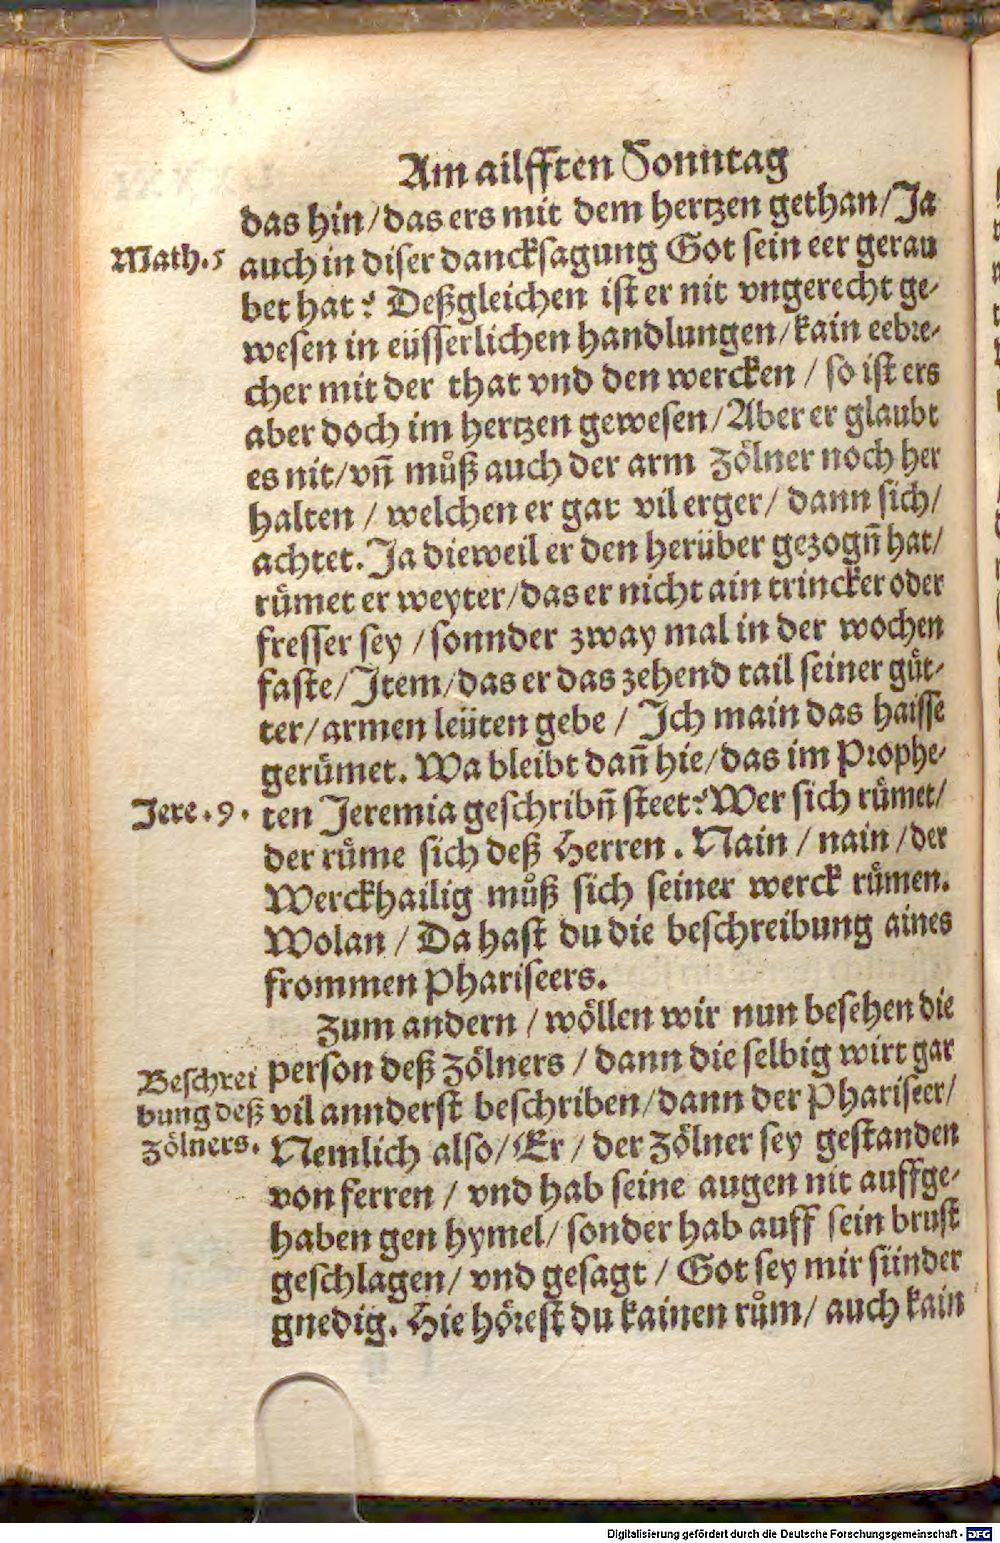 Am ailfften Sonntag
das hin/das ers mit dem hertzen gethan/Ja
Math.5
auch in diser dancksagung Got sein eer gerau
bet hat? Deßgleichen ist er nit vngerecht ge-
wesen in eüsserlichen handlungen/kain eebre-
cher mit der that vnd den wercken / so ist ers
aber doch im hertzen gewesen/Aber er glaubt
es nit/vn̄ můß auch der arm Zölner noch her
halten / welchen er gar vil erger/ dann sich/
achtet. Ja dieweil er den herüber gezogn̄ hat/
růmet er weyter/das er nicht ain trincker oder
fresser sey /sonnder zway mal in der wochen
faste/Jtem/das er das zehend tail seiner gůt-
ter/armen leüten gebe / Jch main das haisse
gerůmet. Wa bleibt dan̄ hie/das im Prophe-
Jere.9.
ten Jeremia geschribn̄ steet? Wer sich růmet/
der růme sich deß Herren. Nain / nain /der
Werckhailig můß sich seiner werck růmen.
Wolan / Da hast du die beschreibung aines
frommen Phariseers.
Zum andern / wöllen wir nun besehen die
Beschrei
bung deß
Zölners.
person deß Zölners / dann die selbig wirt gar
vil annderst beschriben/dann der Phariseer/
Nemlich also/Er / der Zölner sey gestanden
von ferren / vnd hab seine augen nit auffge-
haben gen hymel/ sonder hab auff sein brust
geschlagen/ vnd gesagt / Got sey mir sünder
gnedig. Hie hörest du kainen rům/ auch kain
Digitalisierung gefördert durch die Deutsche Forschungsgemeinschaft - DFG